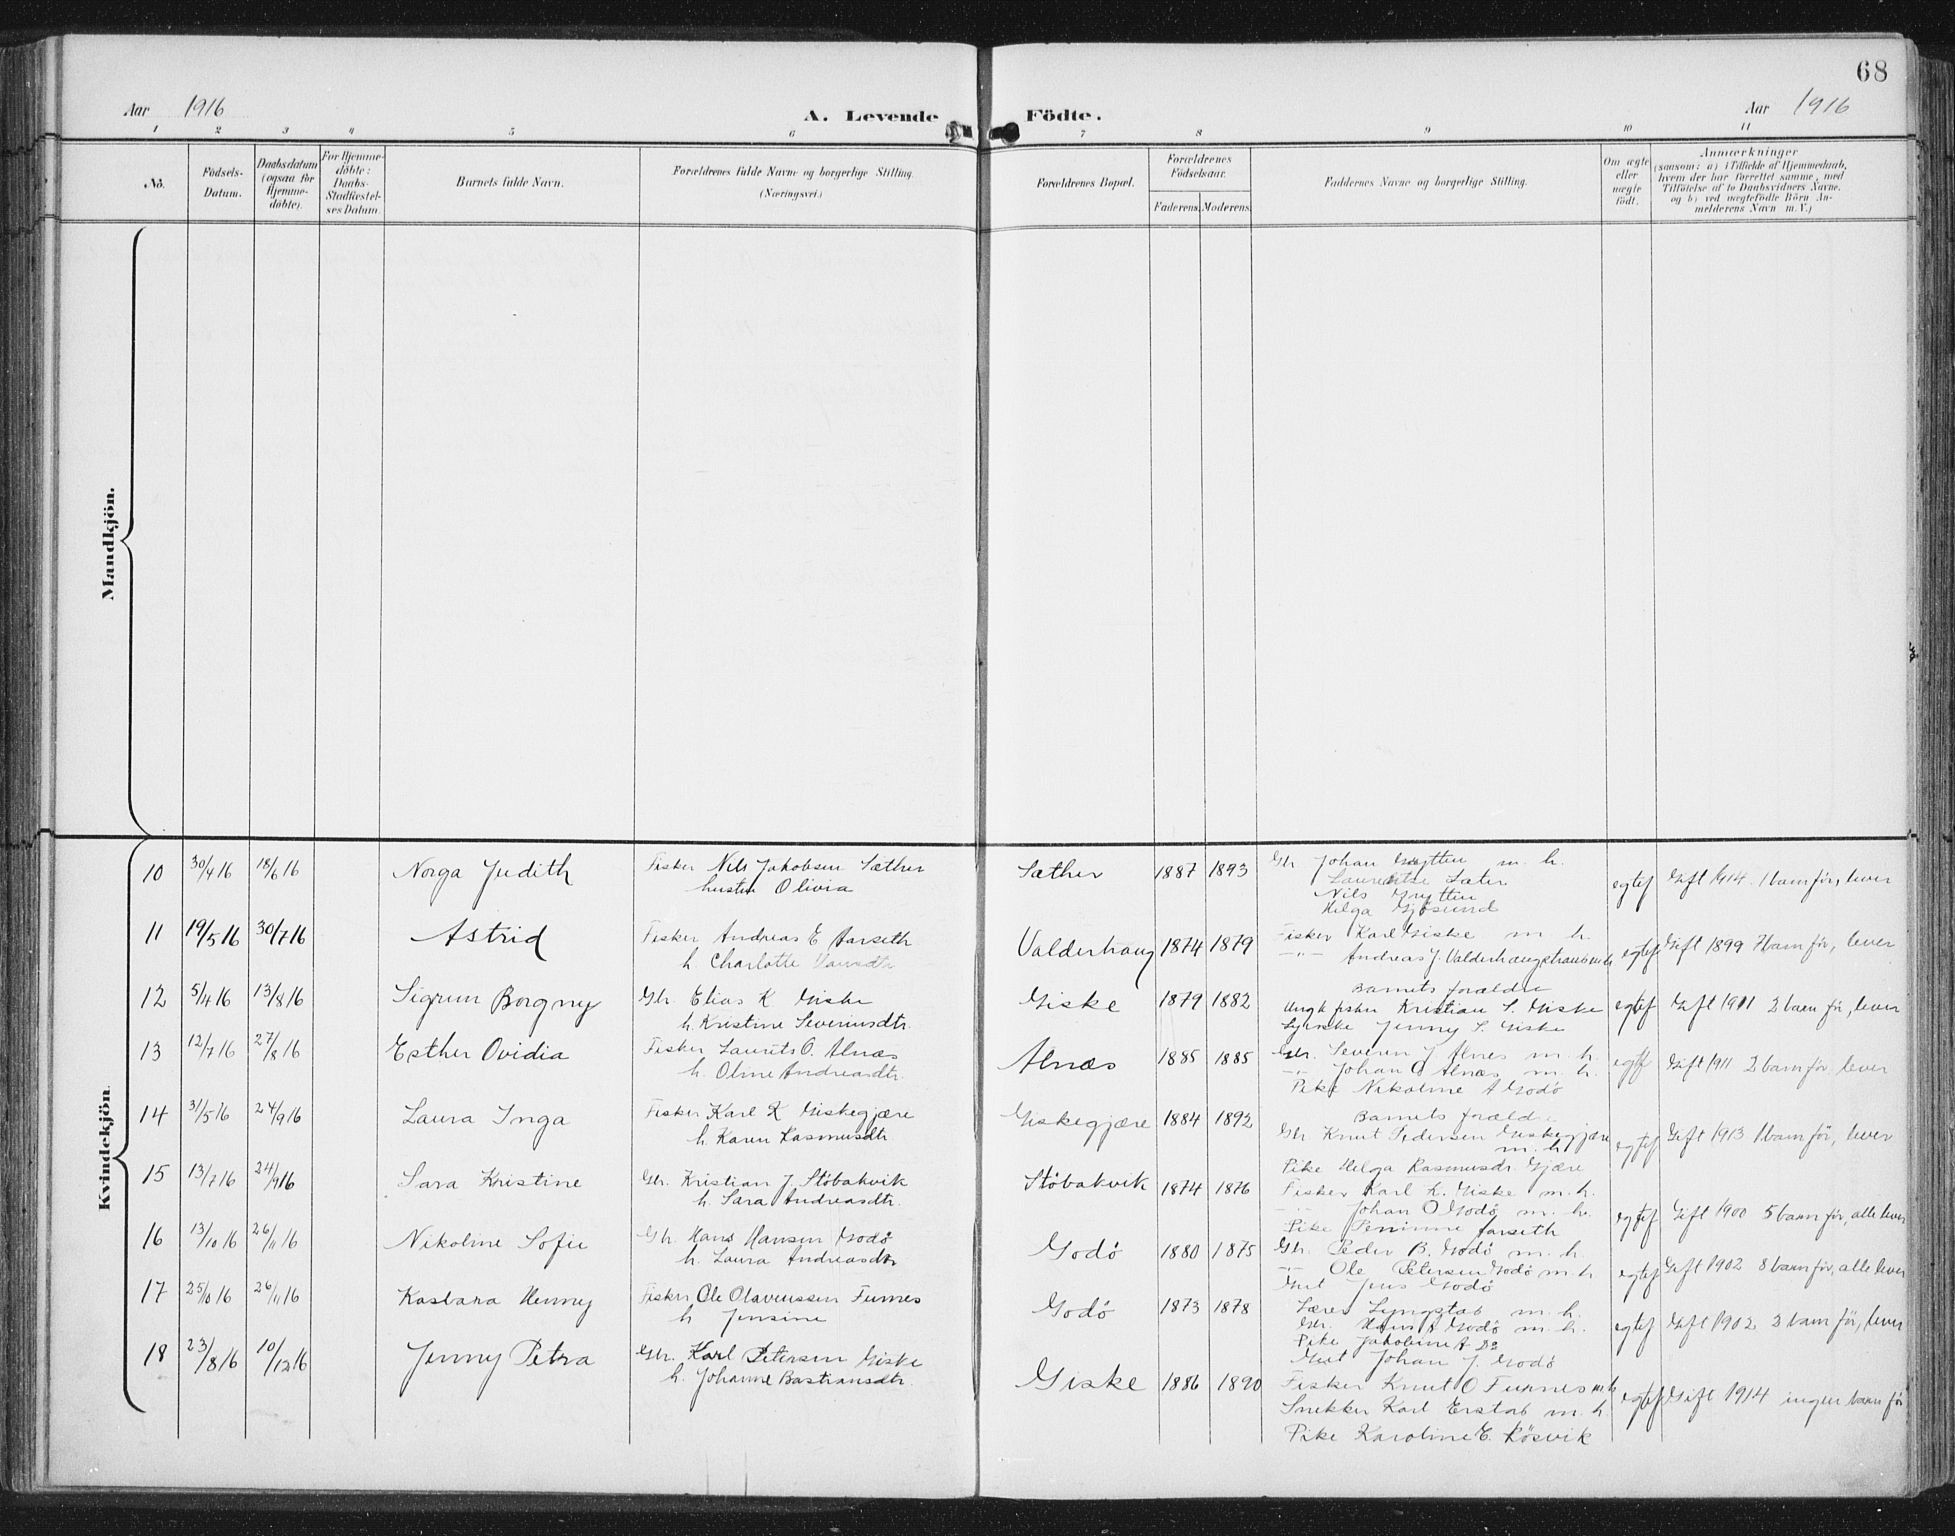 68
Aar 1916 A. Levende Födte. Aar 1916
1 2 3 4 5 6 7 8 9 10 11
No.
Födsels-
Datum.
Daabsdatum
(ogsaa for
Hjemme-
døbte).
For Hjemme-
døbte:
Daabs-
Stadfæstel-
ses Datum
Barnets fulde Navn.
Forældrenes fulde Navne og borgerlige Stilling.
(Næringsvei.)
Forældrenes Bopæl.
Forældrenes
Födselsaar.
Faderens. Moderens.
Faddernes Navne og borgerlige Stilling.
Om ægte
eller
uægte
födt.
Anmærkninger
(saasom: a) i Tilfælde af Hjemmedaab,
hvem der har forrettet samme, med
Tilföielse af to Daabsvidners Navne.
og b) ved uægtefödte Börn An-
melderens Navn m. V.)
Mandkjön.
Kvindekjön.
10 30/4 16 18/6 16 Norga Judith Fisker Nils Jakobsen Sæther
hustru Olivia
Sæther 1887 1893 Gbr. Johan Grytten m. h.
Sæter
Nils Grytten
Helga Gjøsund
egtef Gift 1914. 1 barn før, lever
11 19/5 16 30/7 16 Astrid Fisker Andreas E Aarseth
h. Charlotte
Valderhaug 1874 1879 Fisker Karl Giske m. h.
-"- Andreas J. Valderhaugstrand m h
Barnets forældre
egtef Gift 1899 7 barn før, lever
12 5/4 16 13/8 16 Sigrun Borgny Gbr. Elias K Giske
h. Kristine Severinsdtr.
Giske 1879 1882 Ungk fisker Kristian S. Giske
Jenny S. Giske
egtef Gift 1911 2 barn før, lever
13 12/7 16 27/8 16 Esther Ovidia Fisker Laurits O. Alnæs
h. Oline Andreasdtr.
Alnæs 1885 1885 Gbr. Severin J Alnes m. h.
-"- Johan O Alnæs m. h.
Pike Nikoline A Godø
egtef Gift 1911 2 barn før. lever
14 31/5 16 24/9 16 Laura Inga Fisker Karl K Giskegjære
h. Karen Rasmusdtr
Giskegjære 1884 1892 Barnets foræld.
Gbr Knut Pedersen Giskegjære
m. h.
Pike Helga Rasmusdr. Gjære
egtef Gift 1913 1 barn før, lever
15 13/7 16 24/9 16 Sara Kristine Gbr. Kristian J. Støbakvik
h. Sara Andreasdtr.
Støbakvik 1874 1876 Fisker Karl K. Giske m. h.
-"- Johan O Godø m. h.
Pike Peninne Aarseth
egtef Gift 1900 5 barn før, alle lever
16 13/10 16 26/11 16 Nikoline Sofie Gbr. Hans Hansen Godø
h. Laura Andreasdtr
Godø 1880 1875 Gbr. Peder B. Godø m. h
-"- Ole Petersen Godø m. h
Gut Jens Godø
egtef Gift 1902 8 barn før, alle lever
17 25/10 16 26/11 16 Kasbara Henny Fisker Ole Olavenssen Furnes
h Jensine
Godø 1873 1878 Lærer Lyngstad m. h.
Gbr. Hans A Godø m. h.
Pike Jakobine A Do
Gut Johan J. Godø
egtef Gift 1902 2 barn før, lever
18 23/8 16 10/12 16 Jenny Petra Gbr. Karl Petersen Giske
h. Johanne Bastiansdtr.
Giske 1886 1890 Fisker Knut O Furnes m. h
Snekker Karl Erstad m. h
Pike Karoline E. Røsvik
egtef Gift 1914 ingen barn før